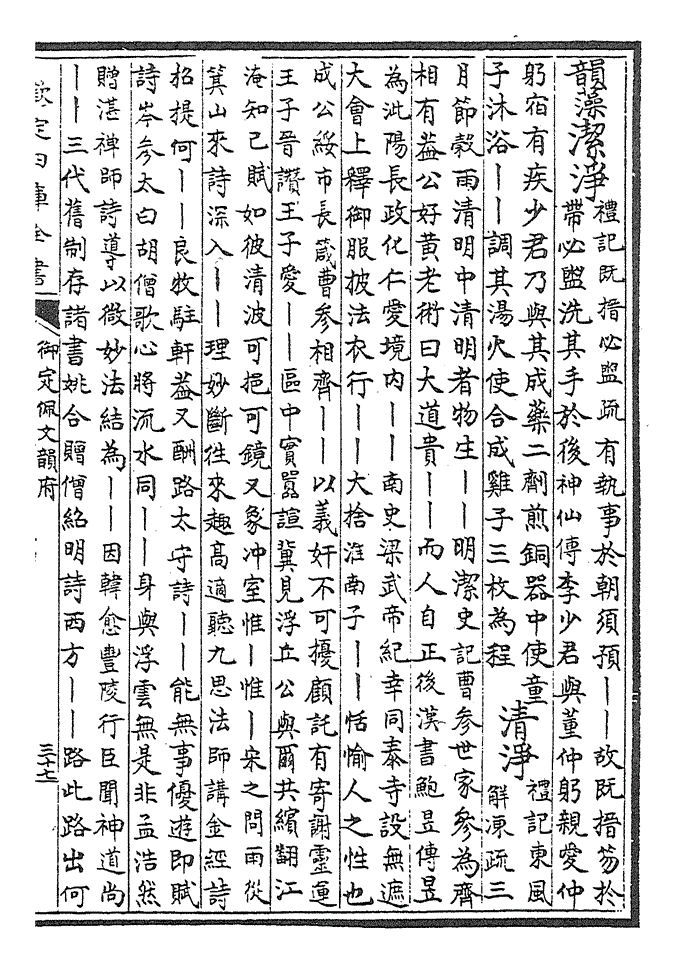 韻藻潔淨
禮記既搢必盥疏有執事於朝須預丨丨故既搢笏於
帶必盥洗其手於後神仙傳李少君與董仲躬親愛仲
躬宿有疾少君乃與其成藥二劑煎銅器中使童
子沐浴丨丨調其湯火使合成雞子三枚為程
清淨
禮記東風
解凍疏三
月節穀雨清明中清明者物生丨丨明潔史記曹參世家參為齊
相有蓋公好黃老術曰大道貴丨丨而人自正後漢書鮑昱傳昱
為沘陽長政化仁愛境内丨丨南史梁武帝紀幸同泰寺設無遮
大會上釋御服披法衣行丨丨大捨淮南子丨丨恬愉人之性也
成公綏市長箴曹參相齊丨丨以義奸不可擾顧託有寄謝靈運
王子晉讚王子愛丨丨區中實囂諠冀見浮丘公與爾共繽翻江
淹知己賦如彼清波可挹可鏡又彖冲室惟丨惟丨宋之問雨從
箕山來詩深入丨丨理妙斷往來趣高適聽九思法師講金經詩
招提何丨丨良牧駐軒蓋又酬路太守詩丨丨能無事優遊即賦
詩岑參太白胡僧歌心將流水同丨丨身與浮雲無是非孟浩然
贈湛禪師詩導以微妙法結為丨丨因韓愈豐陵行臣聞神道尚
丨丨三代舊制存諸書姚合贈僧紹明詩西方丨丨路此路出何
欽定四庫全書
御定佩文韻府
三十七